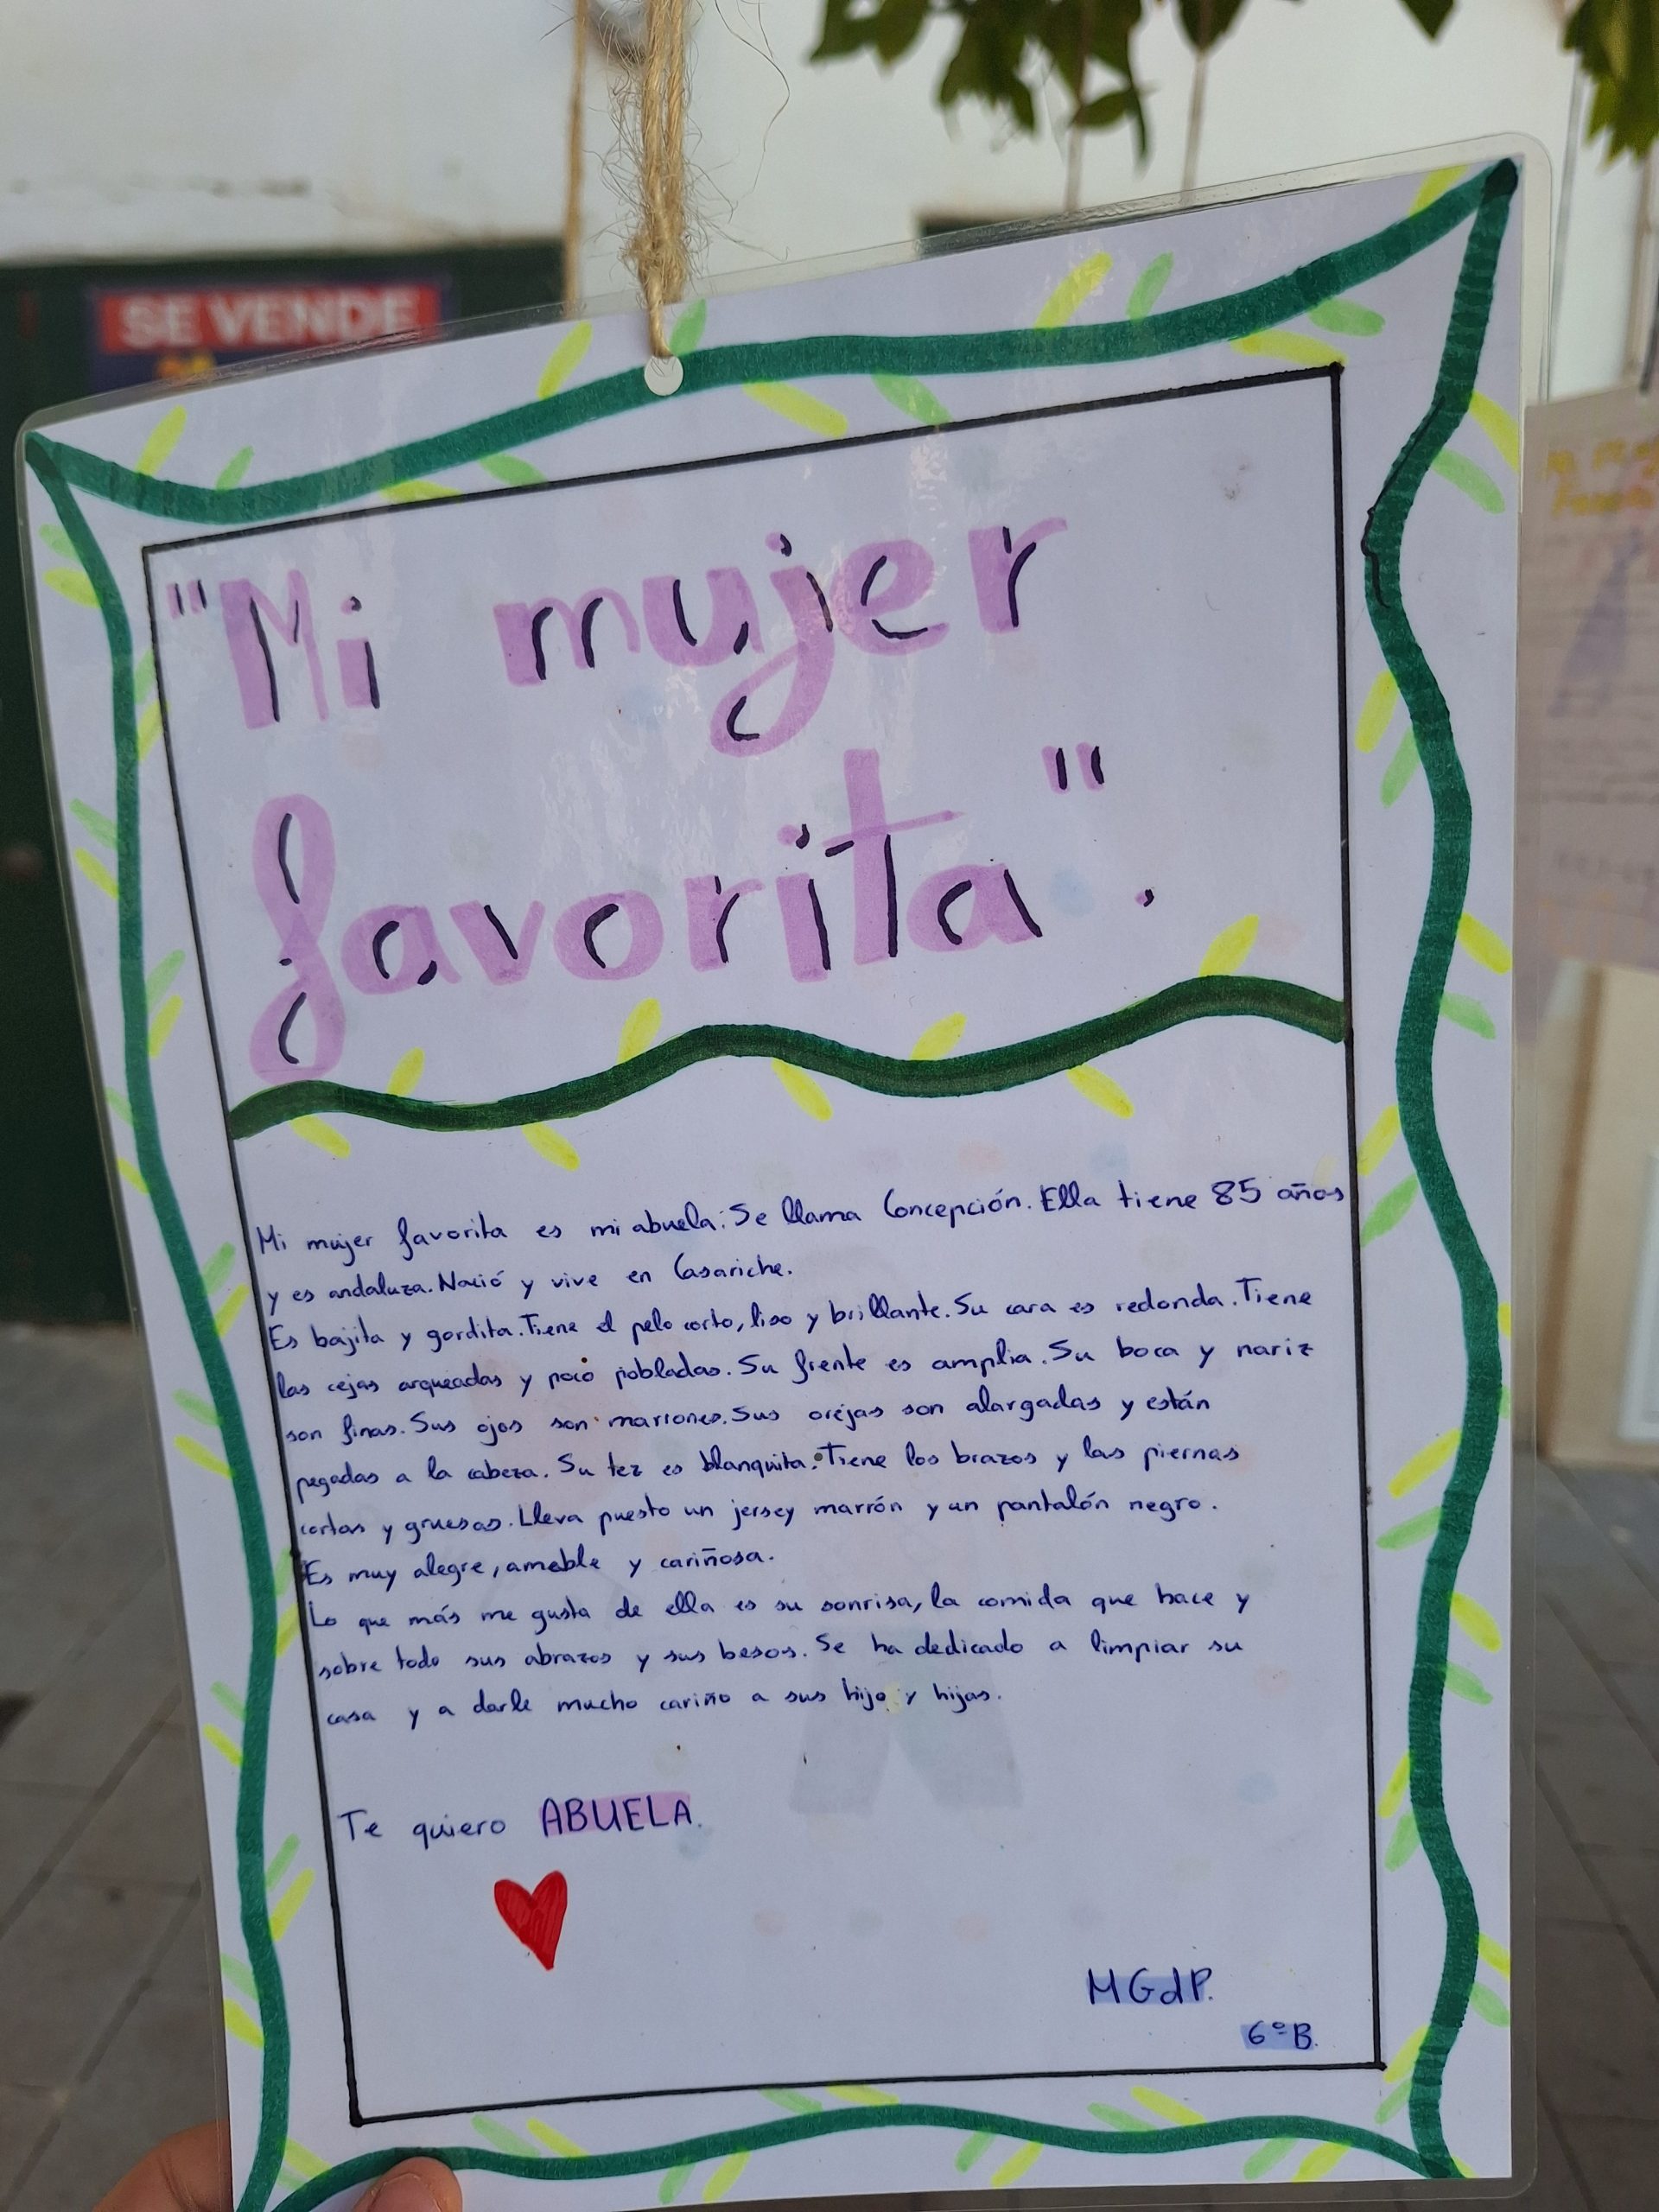 SE VENDE
"Mi mujer
favorita".
Mi mujer favorita es mi abuela. Se llama Concepción. Ella tiene 85 años
y es andaluza. Nació y vive en Casariche.
Es bajita y gordita. Tiene el pelo corto, liso y brillante. Su cara es redonda. Tiene
las cejas arqueadas y poco pobladas. Su frente es amplia. Su boca y nariz
son finas. Sus ojos son marrones. Sus orejas son alargadas y están
pegadas a la cabeza. Su tez es blanquita. Tiene los brazos y las piernas
cortas y gruesas. Lleva puesto un jersey marrón y un pantalón negro.
Es muy alegre, amable y cariñosa.
Lo que más me gusta de ella es su sonrisa, la comida que hace y
sobre todo sus abrazos y sus besos. Se ha dedicado a limpiar su
casa y a darle mucho cariño a sus hijo y hijas.
Te quiero ABUELA.
MGdP.
6ºB.